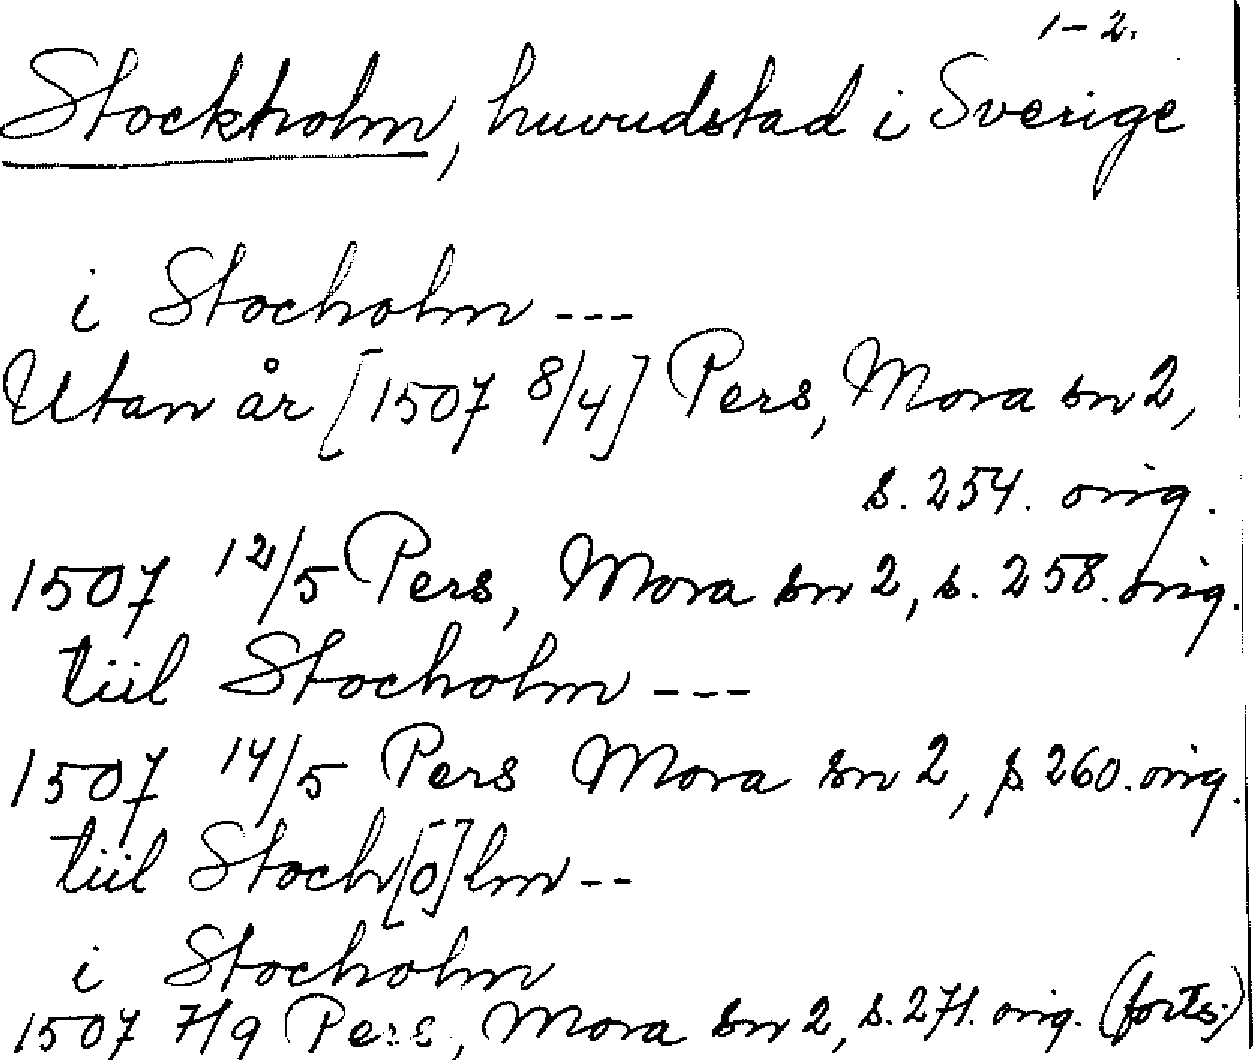 1-2.
Stockholm, huvudstad i Sverige
i Stocholm ---
Utan år [1507 8/4] Pers, Mora sn 2,
s. 254. orig.
1507 12/5 Pers, Mora sn 2, s. 258. orig.
tiil Stocholm ---
1507 14/5 Pers Mora sn 2, s 260. orig.
tiil Stoch[o]lm --
i Stocholm
1507 7/9 Pers, Mora sn 2, s. 271. orig. (forts.)